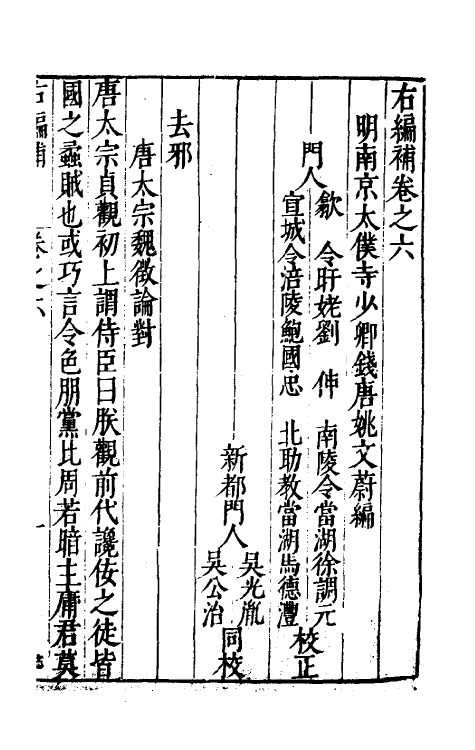 右編補卷之六
明南京太僕寺少卿錢唐姚文蔚編
門人
歙令旴姥劉伸 南陵令當湖徐調元
宣城令涪陵鮑國忠 北助教當湖馬德灃
校正
新都門人
吴光胤
吴公治
同校
去邪
唐太宗魏徵論對
唐太宗貞觀初上謂侍臣曰朕觀前代讒佞之徒皆
國之蟊賊也或巧言令色朋黨比周若暗主庸君莫
右編補 卷之六 一